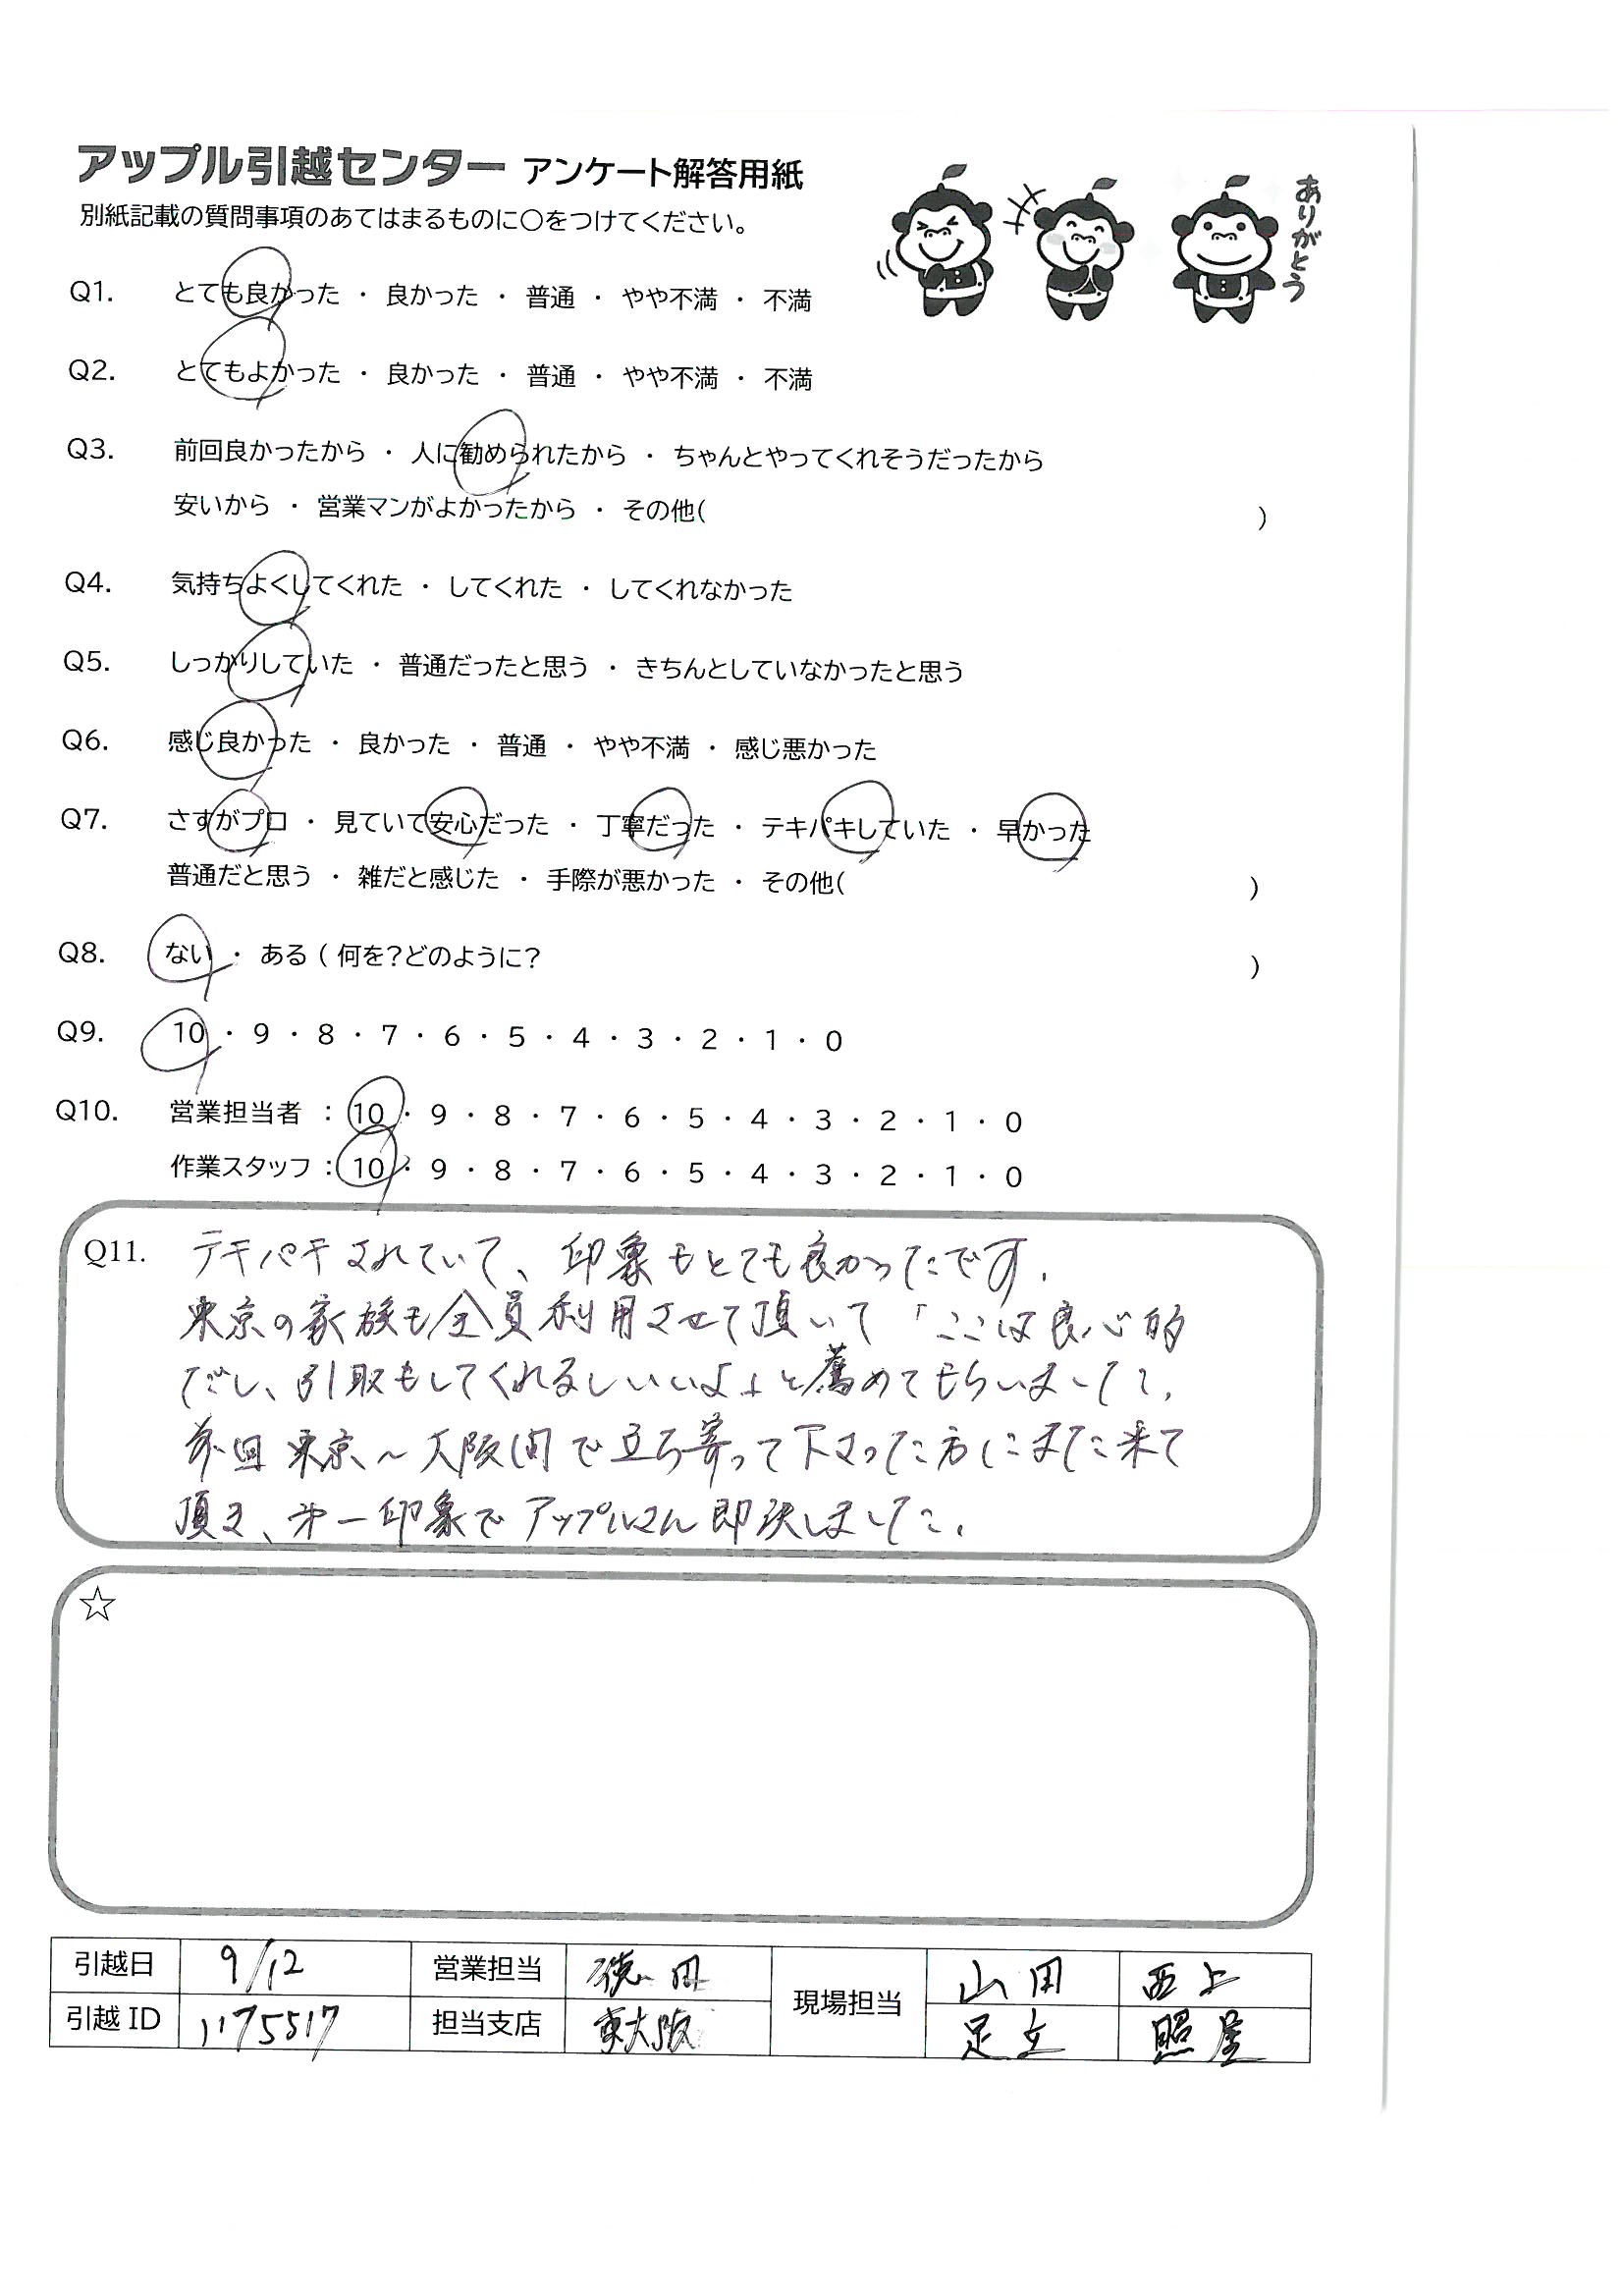 アップル引越センター アンケート解答用紙
別紙記載の質問事項のあてはまるものに○をつけてください。
ありがとう
Q1. とても良かった ・ 良かった ・ 普通 ・ やや不満 ・ 不満
Q2. とてもよかった ・ 良かった ・ 普通 ・ やや不満 ・ 不満
Q3. 前回良かったから ・ 人に勧められたから ・ ちゃんとやってくれそうだったから
安いから ・ 営業マンがよかったから ・ その他( )
Q4. 気持ちよくしてくれた ・ してくれた ・ してくれなかった
Q5. しっかりしていた ・ 普通だったと思う ・ きちんとしていなかったと思う
Q6. 感じ良かった ・ 良かった ・ 普通 ・ やや不満 ・ 感じ悪かった
Q7. さすがプロ ・ 見ていて安心だった ・ 丁寧だった ・ テキパキしていた ・ 早かった
普通だと思う ・ 雑だと感じた ・ 手際が悪かった ・ その他( )
Q8. ない ・ ある ( 何を?どのように? )
Q9. 10 ・ 9 ・ 8 ・ 7 ・ 6 ・ 5 ・ 4 ・ 3 ・ 2 ・ 1 ・ 0
Q10. 営業担当者 : 10 ・ 9 ・ 8 ・ 7 ・ 6 ・ 5 ・ 4 ・ 3 ・ 2 ・ 1 ・ 0
作業スタッフ : 10 ・ 9 ・ 8 ・ 7 ・ 6 ・ 5 ・ 4 ・ 3 ・ 2 ・ 1 ・ 0
Q11. テキパキされていて、印象もとても良かったです。
東京の家族も全員利用させて頂いて「ここは良心的
だし、引取もしてくれるしいいよ」と薦めてもらいました。
今回東京〜大阪間で立ち寄って下さった方にまた来て
頂き、第一印象でアップルさん即決しました。
☆
引越日 9/12 営業担当 徳田 現場担当 山田 西上
引越ID 1175517 担当支店 東大阪 足立 照屋